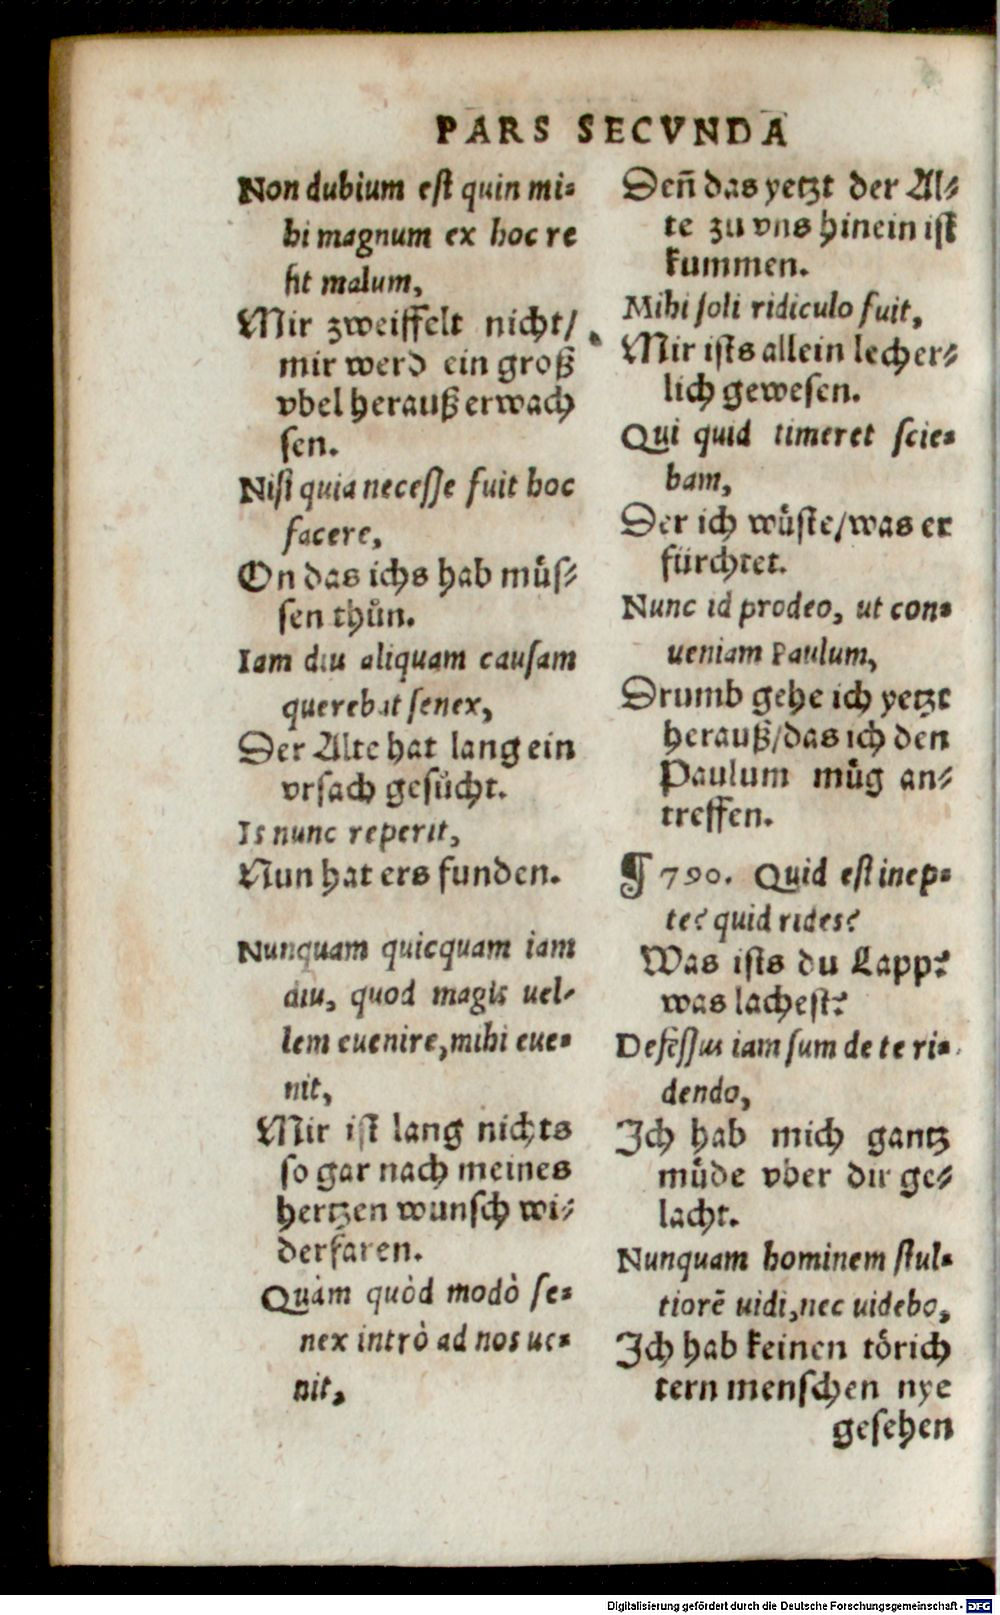 PARS SECVNDA
Non dubium est quin mi-
hi magnum ex hoc re
sit malum,
Mir zweiffelt nicht/
mir werd ein groß
vbel herauß erwach
sen.
Nisi quia necesse fuit hoc
facere,
On das ichs hab muͤs-
sen thůn.
Iam diu aliquam causam
querebat senex,
Der Alte hat lang ein
vrsach gesůcht.
Is nunc reperit,
Nun hat ers funden.
Nunquam quicquam iam
diu, quod magis uel-
lem euenire, mihi eue-
nit,
Mir ist lang nichts
so gar nach meines
hertzen wunsch wi-
derfaren.
Quàm quòd modò se-
nex intrò ad nos ue-
nit,
Deñ das yetzt der Al-
te zu vns hinein ist
kummen.
Mihi soli ridiculo fuit,
Mir ists allein lecher-
lich gewesen.
Qui quid timeret scie-
bam,
Der ich wuͤste/was er
fürchtet.
Nunc id prodeo, ut con-
ueniam Paulum,
Drumb gehe ich yetzt
herauß/das ich den
Paulum muͤg an-
treffen.
¶ 790. Quid est inep-
te? quid rides?
Was ists du Lapp?
was lachest?
Defessus iam sum de te ri-
dendo,
Ich hab mich gantz
muͤde vber dir ge-
lacht.
Nunquam hominem stul-
tiorē uidi, nec uidebo,
Ich hab keinen toͤrich
tern menschen nye
gesehen
Digitalisierung gefördert durch die Deutsche Forschungsgemeinschaft - DFG